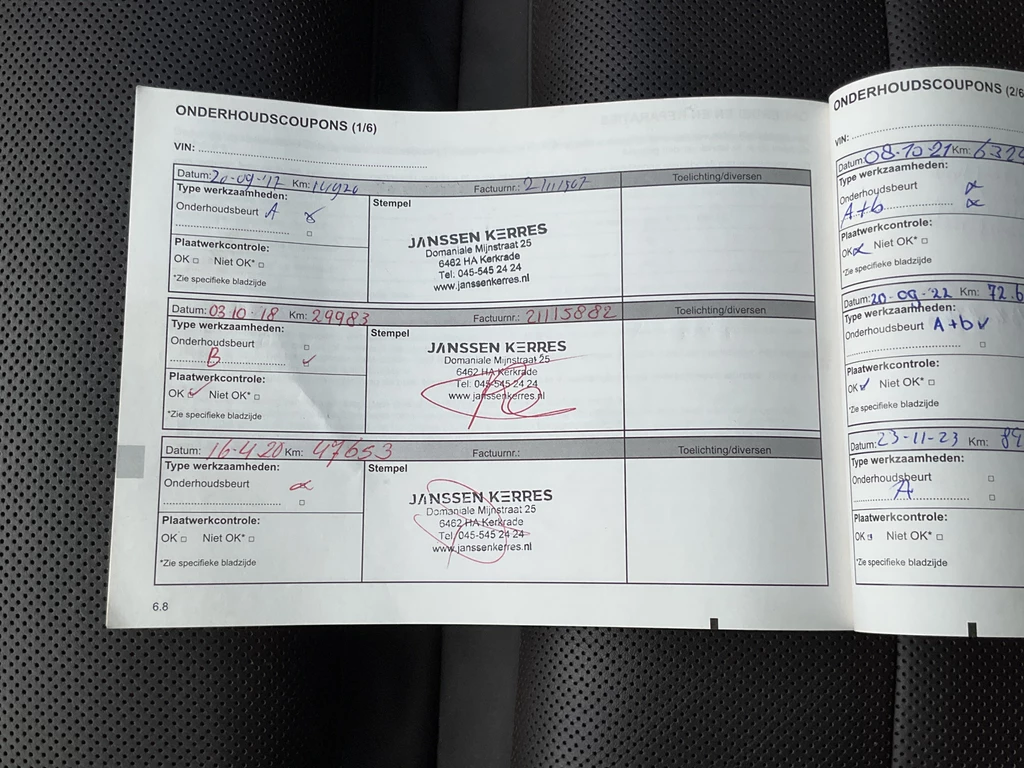 ONDERHOUDSCOUPONS (1/6)
VIN:
Datum: 20-09-'17 Km: 14920 Factuurnr.: Toelichting/diversen
Type werkzaamheden: Stempel
Onderhoudsbeurt A
Plaatwerkcontrole:
OK Niet OK*
*Zie specifieke bladzijde
JANSSEN KERRES
Domaniale Mijnstraat 25
6462 HA Kerkrade
Tel. 045-545 24 24
www.janssenkerres.nl
Datum: 03 10 - 18 Km: 29983 Factuurnr.: 21115882 Toelichting/diversen
Type werkzaamheden: Stempel
Onderhoudsbeurt
B
Plaatwerkcontrole:
OK Niet OK*
*Zie specifieke bladzijde
JANSSEN KERRES
Domaniale Mijnstraat 25
6462 HA Kerkrade
Tel. 045-545 24 24
www.janssenkerres.nl
Datum: 16-4-20 Km: 47653 Factuurnr.: Toelichting/diversen
Type werkzaamheden: Stempel
Onderhoudsbeurt
Plaatwerkcontrole:
OK Niet OK*
*Zie specifieke bladzijde
JANSSEN KERRES
Domaniale Mijnstraat 25
6462 HA Kerkrade
Tel. 045-545 24 24
www.janssenkerres.nl
6.8
ONDERHOUDSCOUPONS (2/6
VIN:
Datum: 08-10-21 Km: 
Type werkzaamheden:
Onderhoudsbeurt
A+b
Plaatwerkcontrole:
OK Niet OK*
*Zie specifieke bladzijde
Datum: 20-09-22 Km: 72.6
Type werkzaamheden:
Onderhoudsbeurt A+b
Plaatwerkcontrole:
OK Niet OK*
*Zie specifieke bladzijde
Datum: 23-11-23 Km: 89
Type werkzaamheden:
Onderhoudsbeurt
A
Plaatwerkcontrole:
OK Niet OK*
*Zie specifieke bladzijde